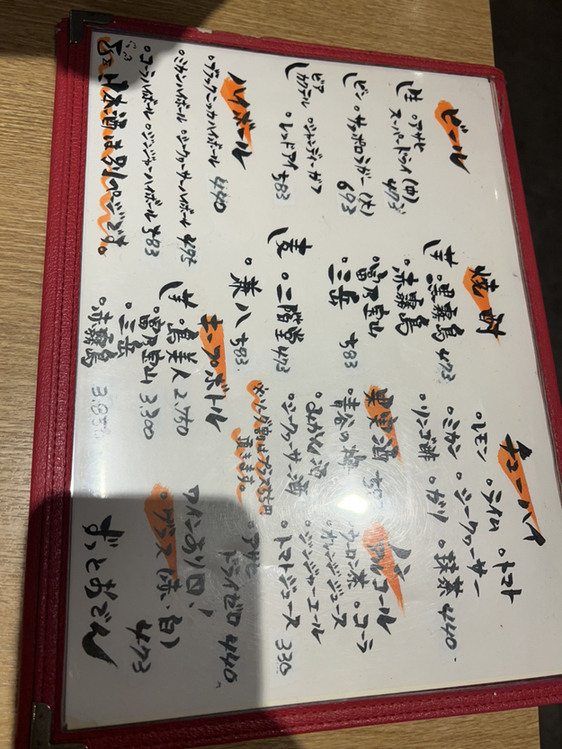 ビール
生 アサヒ
スーパードライ(中) 473
ビン・サッポロラガー(大) 693
ビア
カクテル ・シャンディーガフ
・レッドアイ 583
ハイボール
・ブラックニッカハイボール 440
・ミカンハイボール ・シークヮーサーハイボール 495
・コーラハイボール ・ジンジャーハイボール 583
日本酒は別ページです。
焼酎
芋 ・黒霧島 473
・赤霧島
・富乃宝山
・三岳 583
麦 ・二階堂 473
・兼八 583
キープボトル
芋 ・島美人 2,790
・富乃宝山
・三岳 3,300
・赤霧島
チューハイ
・レモン ・ライム ・トマト
・ミカン ・シークヮーサー
・リンゴ酢 ・ガリ ・抹茶 440
果実酒
・青谷の梅
・みかん酒
・シークヮーサー酒
ノンアルコール
・ウーロン茶 ・コーラ
・オレンジジュース
・ジンジャーエール
・トマトジュース 330
・アサヒ
ドライゼロ 440
ワインあり〼!
・グラス(赤・白) 473
ずっとおでん